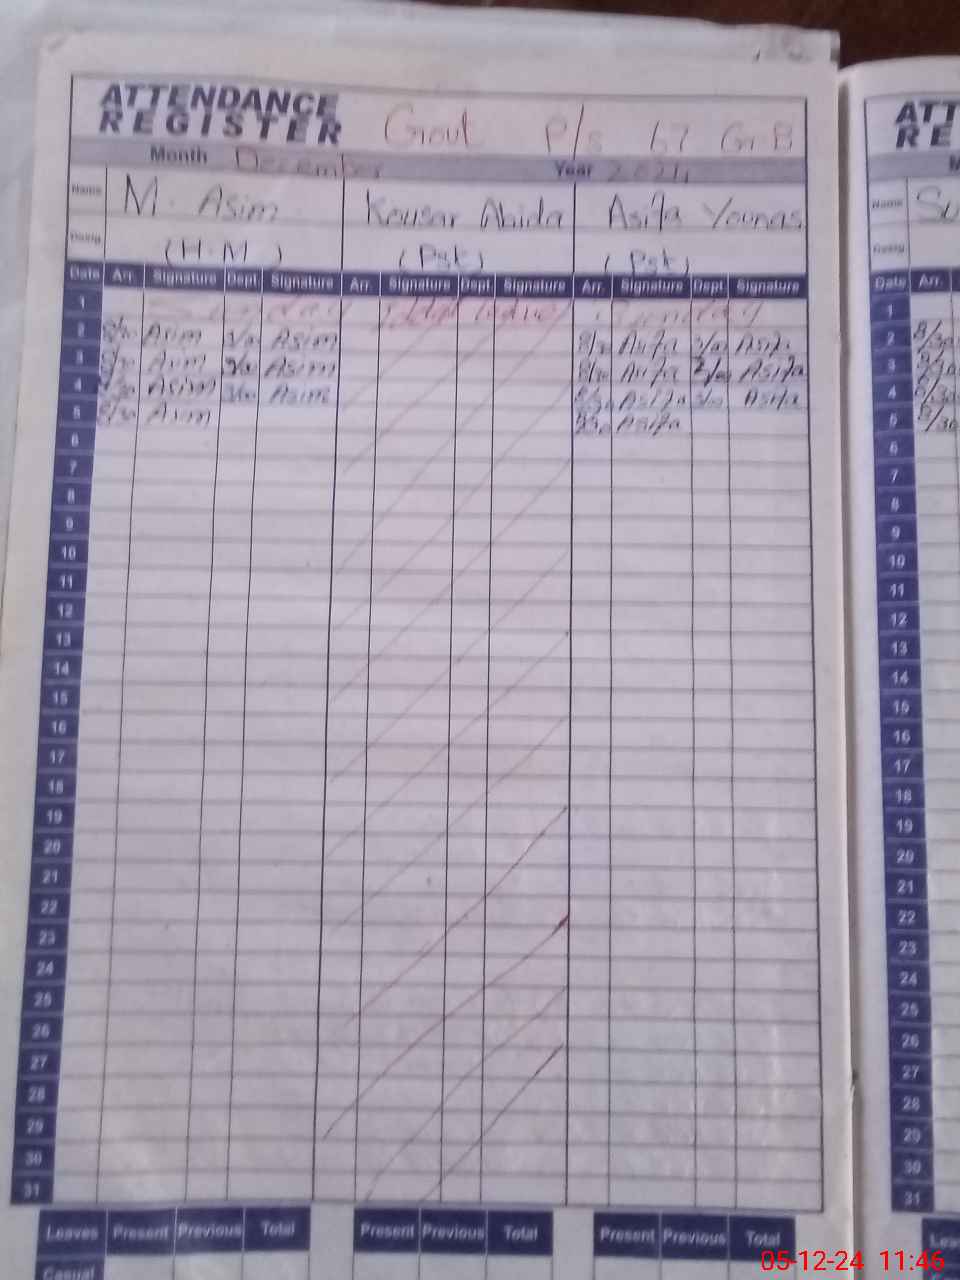 ATTENDANCE
REGISTER
Govt P/s 67 G.B
Month December Year 2024
Name M. Asim Kousar Abida Asifa Younas
Desig (H.M) (Pst) (Pst)
Date Arr. Signature Dept. Signature Arr. Signature Dept. Signature Arr. Signature Dept. Signature
1 Sunday Sunday
2 8/30 Asim 3/00 Asim 8/30 Asifa 3/00 Asifa
3 8/30 Asim 3/00 Asim 8/30 Asifa 2/00 Asifa
4 8/30 Asim 3/00 Asim 8/30 Asifa 3/00 Asifa
5 8/30 Asim Asifa
6
7
8
9
10
11
12
13
14
15
16
17
18
19
20
21
22
23
24
25
26
27
28
29
30
31
Leaves Present Previous Total Present Previous Total Present Previous Total
Casual
ATT
RE
Name Su
Desig
Date Arr.
1
2 8/30
3 8/30
4 8/30
5 8/30
6
7
8
9
10
11
12
13
14
15
16
17
18
19
20
21
22
23
24
25
26
27
28
29
30
31
05-12-24 11:46